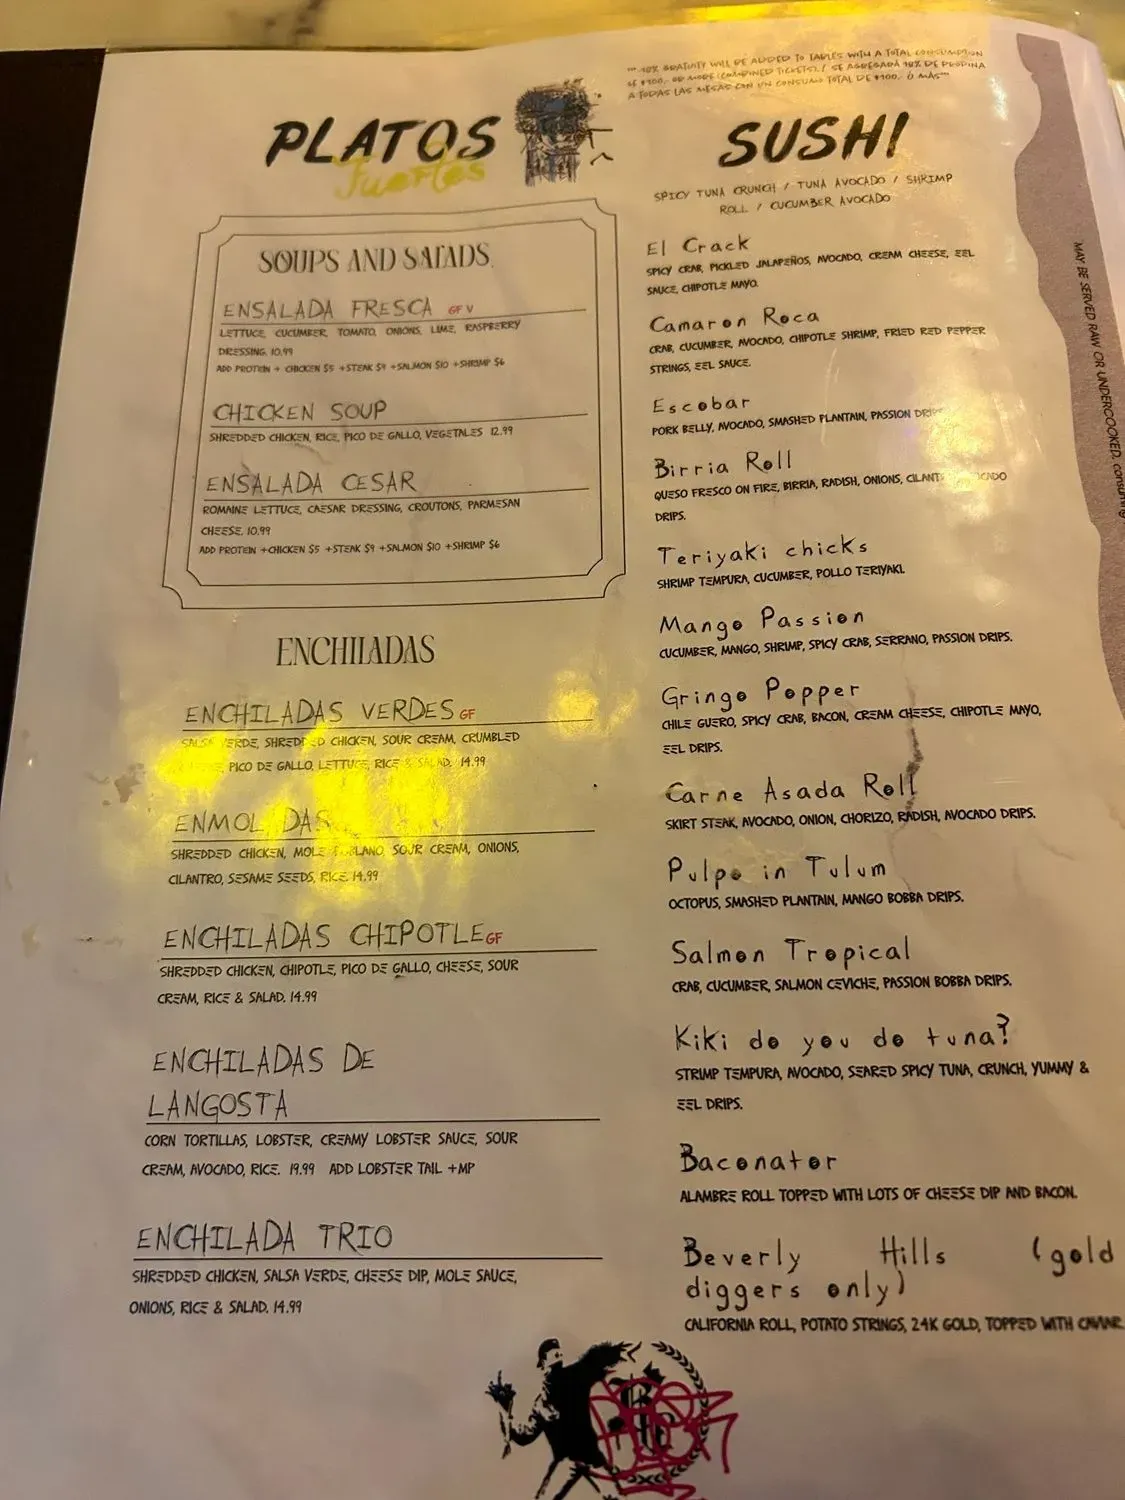 *** 18% GRATUITY WILL BE ADDED TO TABLES WITH A TOTAL CONSUMPTION
OF $100,- OR MORE (COMBINED TICKETS). / SE AGREGARÁ 18% DE PROPINA
A TODAS LAS MESAS CON UN CONSUMO TOTAL DE $100. Ó MÁS***
PLATOS
Fuertes
SOUPS AND SALADS
ENSALADA FRESCA GF V
LETTUCE, CUCUMBER, TOMATO, ONIONS, LIME, RASPBERRY
DRESSING. 10.99
ADD PROTEIN + CHICKEN $5 +STEAK $9 +SALMON $10 +SHRIMP $6
CHICKEN SOUP
SHREDDED CHICKEN, RICE, PICO DE GALLO, VEGETALES 12.99
ENSALADA CESAR
ROMAINE LETTUCE, CAESAR DRESSING, CROUTONS, PARMESAN
CHEESE. 10.99
ADD PROTEIN +CHICKEN $5 +STEAK $9 +SALMON $10 +SHRIMP $6
ENCHILADAS
ENCHILADAS VERDES GF
SALSA VERDE, SHREDDED CHICKEN, SOUR CREAM, CRUMBLED
PICO DE GALLO, LETTUCE, RICE & SALAD. 14.99
ENMOLADAS
SHREDDED CHICKEN, MOLE POBLANO, SOUR CREAM, ONIONS,
CILANTRO, SESAME SEEDS, RICE. 14.99
ENCHILADAS CHIPOTLE GF
SHREDDED CHICKEN, CHIPOTLE, PICO DE GALLO, CHEESE, SOUR
CREAM, RICE & SALAD. 14.99
ENCHILADAS DE
LANGOSTA
CORN TORTILLAS, LOBSTER, CREAMY LOBSTER SAUCE, SOUR
CREAM, AVOCADO, RICE. 19.99 ADD LOBSTER TAIL +MP
ENCHILADA TRIO
SHREDDED CHICKEN, SALSA VERDE, CHEESE DIP, MOLE SAUCE,
ONIONS, RICE & SALAD. 14.99
SUSHI
SPICY TUNA CRUNCH / TUNA AVOCADO / SHRIMP
ROLL / CUCUMBER AVOCADO
El Crack
SPICY CRAB, PICKLED JALAPEÑOS, AVOCADO, CREAM CHEESE, EEL
SAUCE, CHIPOTLE MAYO.
Camaron Roca
CRAB, CUCUMBER, AVOCADO, CHIPOTLE SHRIMP, FRIED RED PEPPER
STRINGS, EEL SAUCE.
Escobar
PORK BELLY, AVOCADO, SMASHED PLANTAIN, PASSION DRIPS
Birria Roll
QUESO FRESCO ON FIRE, BIRRIA, RADISH, ONIONS, CILANTRO, AVOCADO
DRIPS.
Teriyaki chicks
SHRIMP TEMPURA, CUCUMBER, POLLO TERIYAKI.
Mango Passion
CUCUMBER, MANGO, SHRIMP, SPICY CRAB, SERRANO, PASSION DRIPS.
Gringo Popper
CHILE GUERO, SPICY CRAB, BACON, CREAM CHEESE, CHIPOTLE MAYO,
EEL DRIPS.
Carne Asada Roll
SKIRT STEAK, AVOCADO, ONION, CHORIZO, RADISH, AVOCADO DRIPS.
Pulpo in Tulum
OCTOPUS, SMASHED PLANTAIN, MANGO BOBBA DRIPS.
Salmon Tropical
CRAB, CUCUMBER, SALMON CEVICHE, PASSION BOBBA DRIPS.
Kiki do you do tuna?
STRIMP TEMPURA, AVOCADO, SEARED SPICY TUNA, CRUNCH, YUMMY &
EEL DRIPS.
Baconator
ALAMBRE ROLL TOPPED WITH LOTS OF CHEESE DIP AND BACON.
Beverly Hills (gold
diggers only)
CALIFORNIA ROLL, POTATO STRINGS, 24K GOLD, TOPPED WITH CAVIAR.
MAY BE SERVED RAW OR UNDERCOOKED, consuming